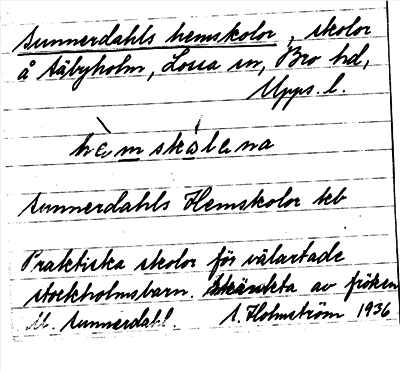 Sunnerdahls hemskolor, skolor
å Säbyholm, Låssa sn, Bro hd,
Upps. l.
hemskolena
Sunnerdahls Hemskolor tkb
Praktiska skolor för välartade
stockholmsbarn. Skänkta av fröken
M. Sunnerdahl. S. Holmström 1936